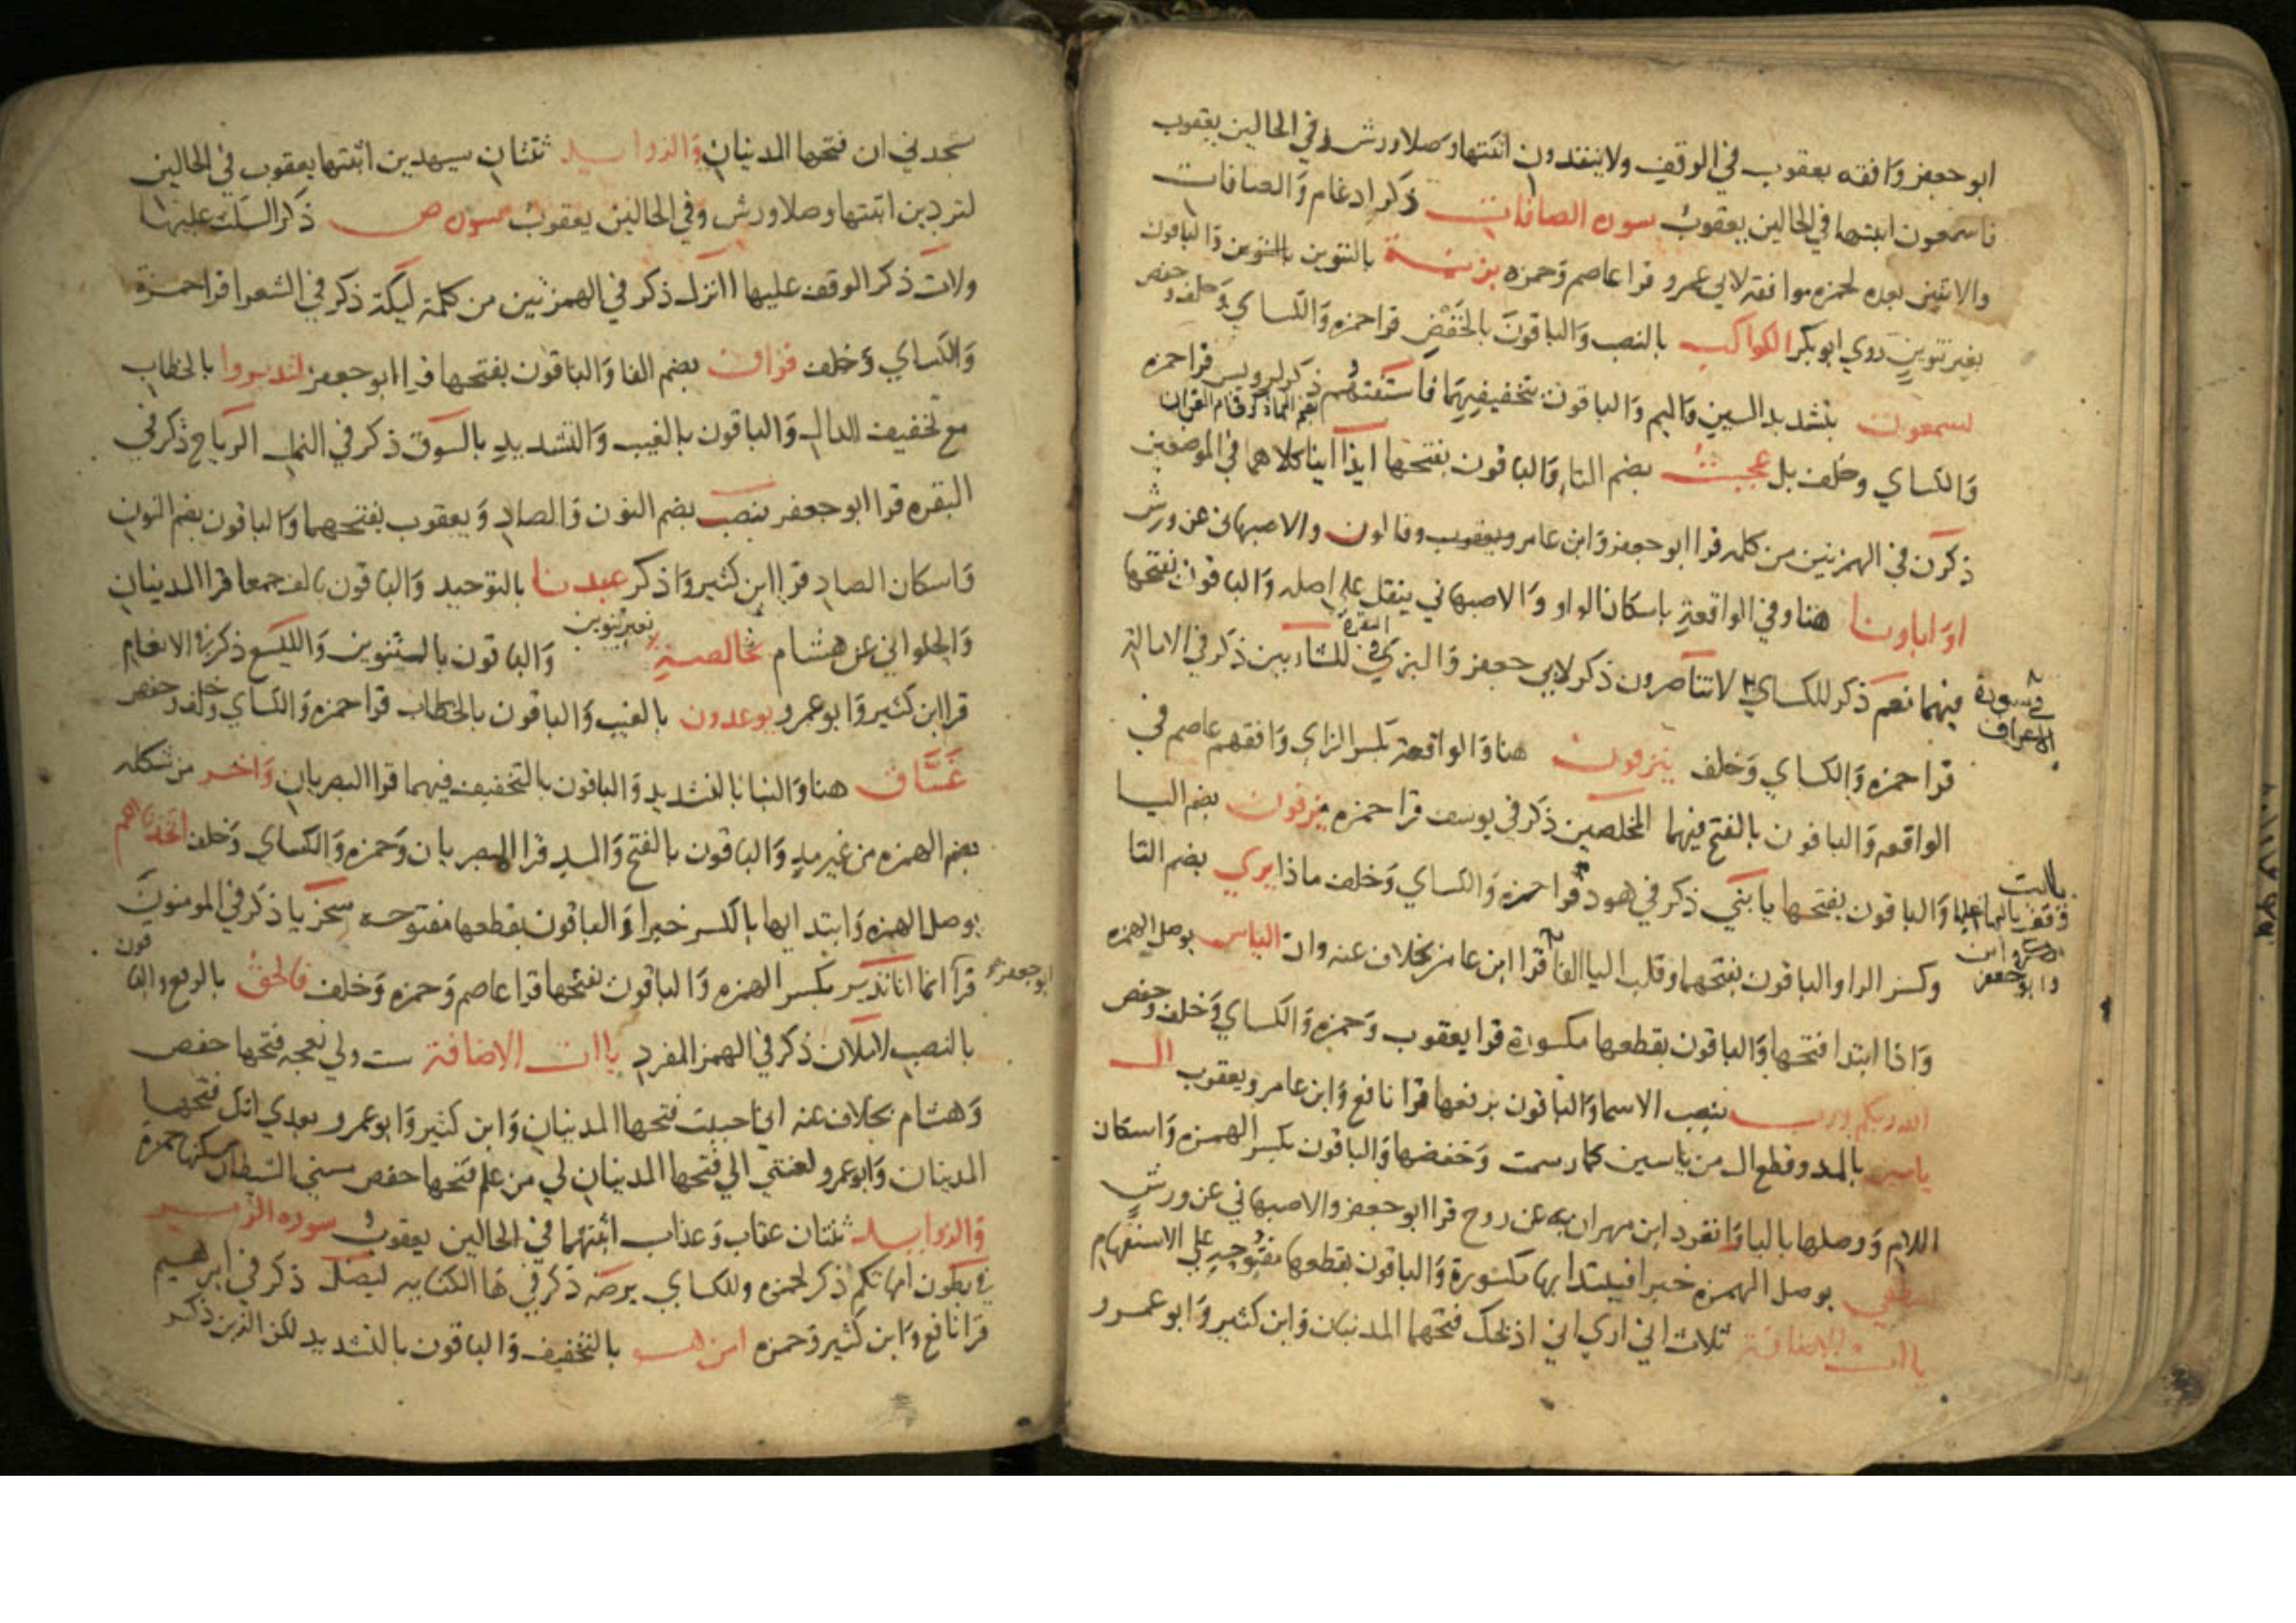 ابو جعفر وافقه يعقوب في الوقف ولا ينقذون اثبتها وصلا ورش وفي الحالين يعقوب
فاسمعون اثبتها في الحالين يعقوب سورة الصافات ذكر ادغام والصافات
والاثنين بعده لحمزه موافقة لابي عمرو قرا عاصم وحمزه بزينة بالتنوين والباقون
بغير تنوين روي ابو بكر الكواكب بالنصب والباقون بالخفض قرا حمزه والكساي وخلف وحفص
لسمعون بتشديد السين والميم والباقون بتخفيفهما فاستفتهم ذكر لرويس قرا حمزه
والكساي وخلف بل عجبت بضم التاء والباقون بفتحها ايذا اينا كلاهما في الموضعين
ذكرن في الهمزتين من كلمه قرا ابو جعفر وابن عامر ويعقوب وقالون والاصبهاني عن ورش
او اباونا هنا وفي الواقعة باسكان الواو والاصبهاني ينقل علي اصله والباقون بفتحها
فيهما نعم ذكر للكساي لا تناصرون ذكر لابي جعفر والبزي في البقرة للشاربين ذكر في الامالة
في سورة الاعراف
قرا حمزه والكساي وخلف ينزفون هنا والواقعة بكسر الزاي وافقهم عاصم في
الواقعه والباقون بالفتح فيهما المخلصين ذكر في يوسف قرا حمزه يزفون بضم اليا
والباقون بفتحها يا بني ذكر في هود قرا حمزه والكساي وخلف ماذا يري بضم التا
يا ابت
وابو جعفر
وكسر الرا والباقون بفتحهما وقلب اليا الفا قرا ابن عامر بخلاف عنه وان الياس بوصل الهمزه
واذا ابتدا فتحها والباقون بقطعها مكسورة قرا يعقوب وحمزه والكساي وخلف وحفص
الله ربكم ورب بنصب الاسما والباقون برفعها قرا نافع وابن عامر ويعقوب ال
ياسين بالمد وقطع ال من ياسين كما رسمت وخفضها والباقون بكسر الهمزه واسكان
اللام ووصلها باليا وانفرد ابن مهران به عن روح قرا ابو جعفر والاصبهاني عن ورش
اصطفي بوصل الهمزه خبرا فيبتدا بها مكسورة والباقون بقطعها مفتوحة علي الاستفهام
ياات الاضافة ثلاث اني اري اني اذبحك فتحهما المدنيان وابن كثير وابو عمرو
ستجدني ان فتحها المدنيان والزوايد ثنتان سيهدين اثبتها يعقوب في الحالين
لتردين اثبتها وصلا ورش وفي الحالين يعقوب سورة ص ذكر السكت عليها
ولات ذكر الوقف عليها اانزل ذكر في الهمزتين من كلمة ليكة ذكر في الشعرا قرا حمزة
والكساي وخلف فواق بضم الفا والباقون بفتحها قرا ابو جعفر لتدبروا بالخطاب
مع تخفيف الدال والباقون بالغيب والتشديد بالسوق ذكر في النمل الرياح ذكر في
البقره قرا ابو جعفر بنصب بضم النون والصاد ويعقوب بفتحهما والباقون بضم النون
واسكان الصاد قرا ابن كثير واذكر عبدنا بالتوحيد والباقون بالف جمعا قرا المدنيان
والحلواني عن هشام بخالصة بغير تنوين والباقون بالتنوين واليسع ذكر في الانعام
قرا ابن كثير وابو عمرو يوعدون بالغيب والباقون بالخطاب قرا حمزه والكساي وخلف وحفص
غساق هنا والنبا بالتشديد والباقون بالتخفيف فيهما قرا البصريان واخر من شكله
بضم الهمزه من غير مد والباقون بالفتح والمد قرا البصريان وحمزه والكساي وخلف اتخذناهم
بوصل الهمزه وابتدايها بالكسر خبرا والباقون بقطعها مفتوحه سخريا ذكر في المومنون
ابو جعفر
قرا انما انا نذير بكسر الهمزه والباقون بفتحها قرا عاصم وحمزه وخلف فالحق بالرفع والباقون
بالنصب لاملان ذكر في الهمز المفرد ياات الاضافة ست ولي نعجه فتحها حفص
وهشام بخلاف عنه اني احببت فتحها المدنيان وابن كثير وابو عمرو بعدي انك فتحها
المدنيان وابو عمرو لعنتي الي فتحها المدنيان لي من علم فتحها حفص مسني الشيطان سكنها حمزة
والزوايد ثنتان عقاب وعذاب اثبتهما في الحالين يعقوب سورة الزمر
في بطون امهاتكم ذكر لحمزه وللكساي يرضه ذكر في ها الكنايه ليضل ذكر في ابرهيم
قرا نافع وابن كثير وحمزه امن هو بالتخفيف والباقون بالتشديد لكن الذين ذكر